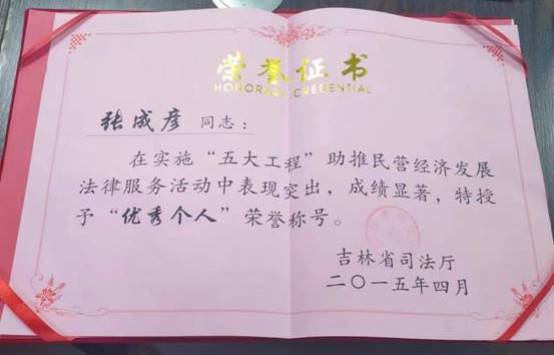 荣誉证书
HONORARY CREDENTIAL
张成彦 同志：
在实施“五大工程”助推民营经济发展
法律服务活动中表现突出，成绩显著，特授
予“优秀个人”荣誉称号。
吉林省司法厅
二〇一五年四月